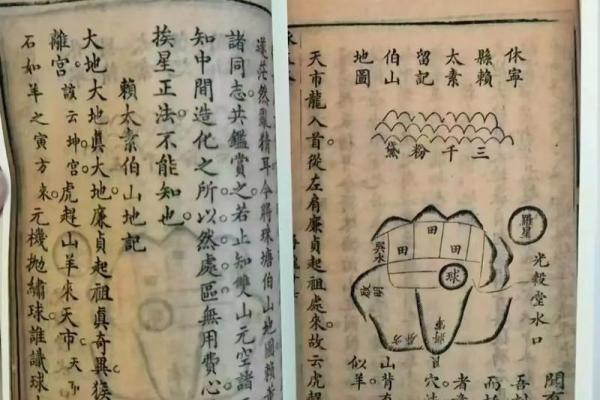 休寧
縣賴
太素
留記
伯山
地圖
三千粉黛
羅星
光穀堂水口
田
田
田
球
天市龍入首從左肩廉貞起祖處來故云虎趕
山背有
似羊
茫然猜耳今將珠塘伯山地圖賴
諸同志共鑑賞之若止知雙山元空諸
知中間造化之所以然處區無用費心
挨星正法不能知也
賴太素伯山地記
大地大地真大地廉貞起祖真奇異猴
離宮該云坤宮虎趕山羊來天市天
石如羊之寅方來元機拋繡球誰識球